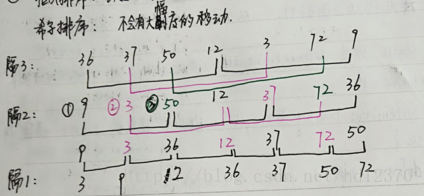 希尔排序: 不会有大幅度的移动.
隔3: 36 37 50 12 3 72 9
隔2: ① 9 ② 3 ③ 50 12 37 72 36
9 3 36 12 37 72 50
隔1: 3 9 12 36 37 50 72